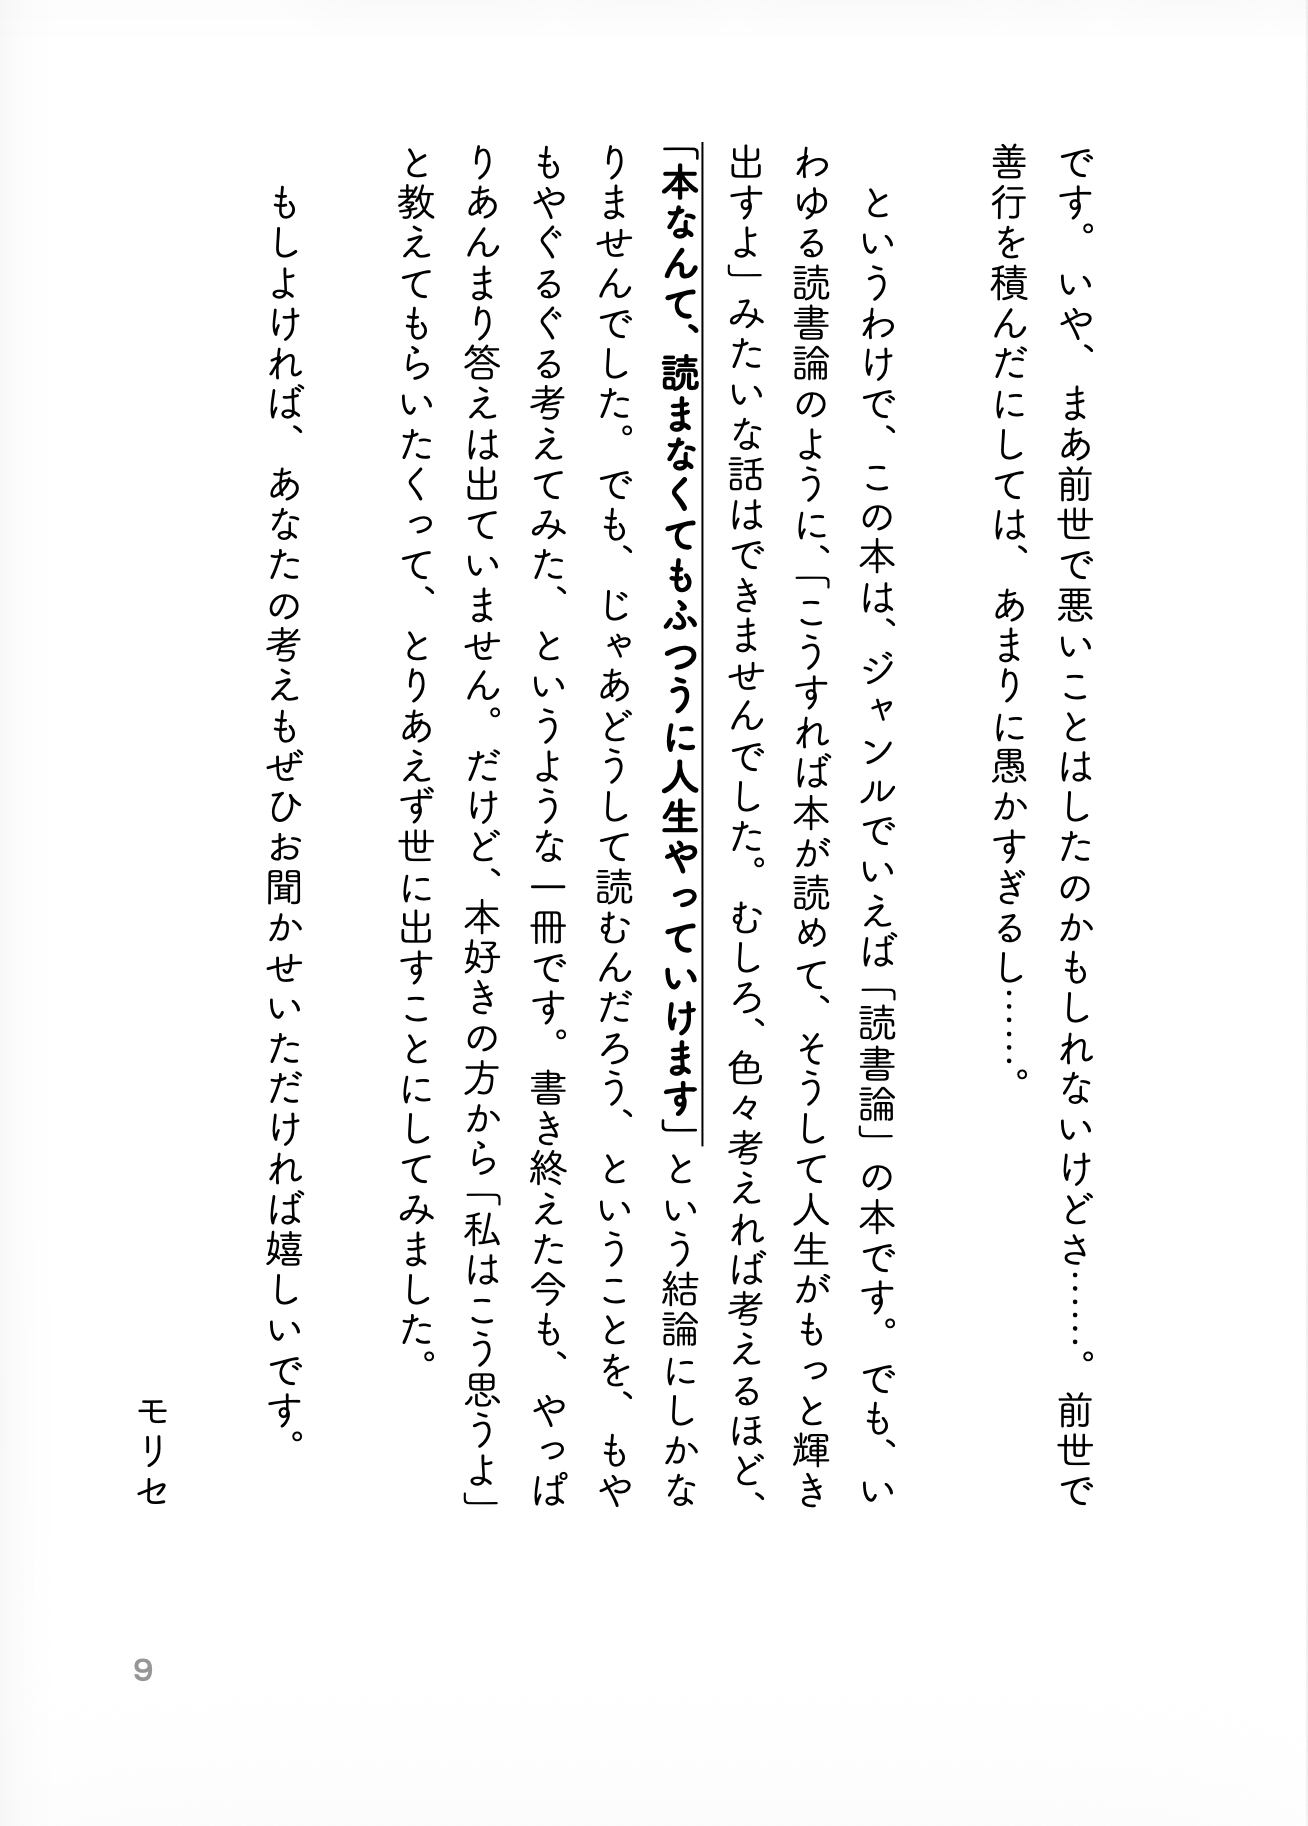 です。いや、まあ前世で悪いことはしたのかもしれないけどさ……。前世で
善行を積んだにしては、あまりに愚かすぎるし……。
というわけで、この本は、ジャンルでいえば「読書論」の本です。でも、い
わゆる読書論のように、「こうすれば本が読めて、そうして人生がもっと輝き
出すよ」みたいな話はできませんでした。むしろ、色々考えれば考えるほど、
「本なんて、読まなくてもふつうに人生やっていけます」という結論にしかな
りませんでした。でも、じゃあどうして読むんだろう、ということを、もや
もやぐるぐる考えてみた、というような一冊です。書き終えた今も、やっぱ
りあんまり答えは出ていません。だけど、本好きの方から「私はこう思うよ」
と教えてもらいたくって、とりあえず世に出すことにしてみました。
もしよければ、あなたの考えもぜひお聞かせいただければ嬉しいです。
モリセ
9